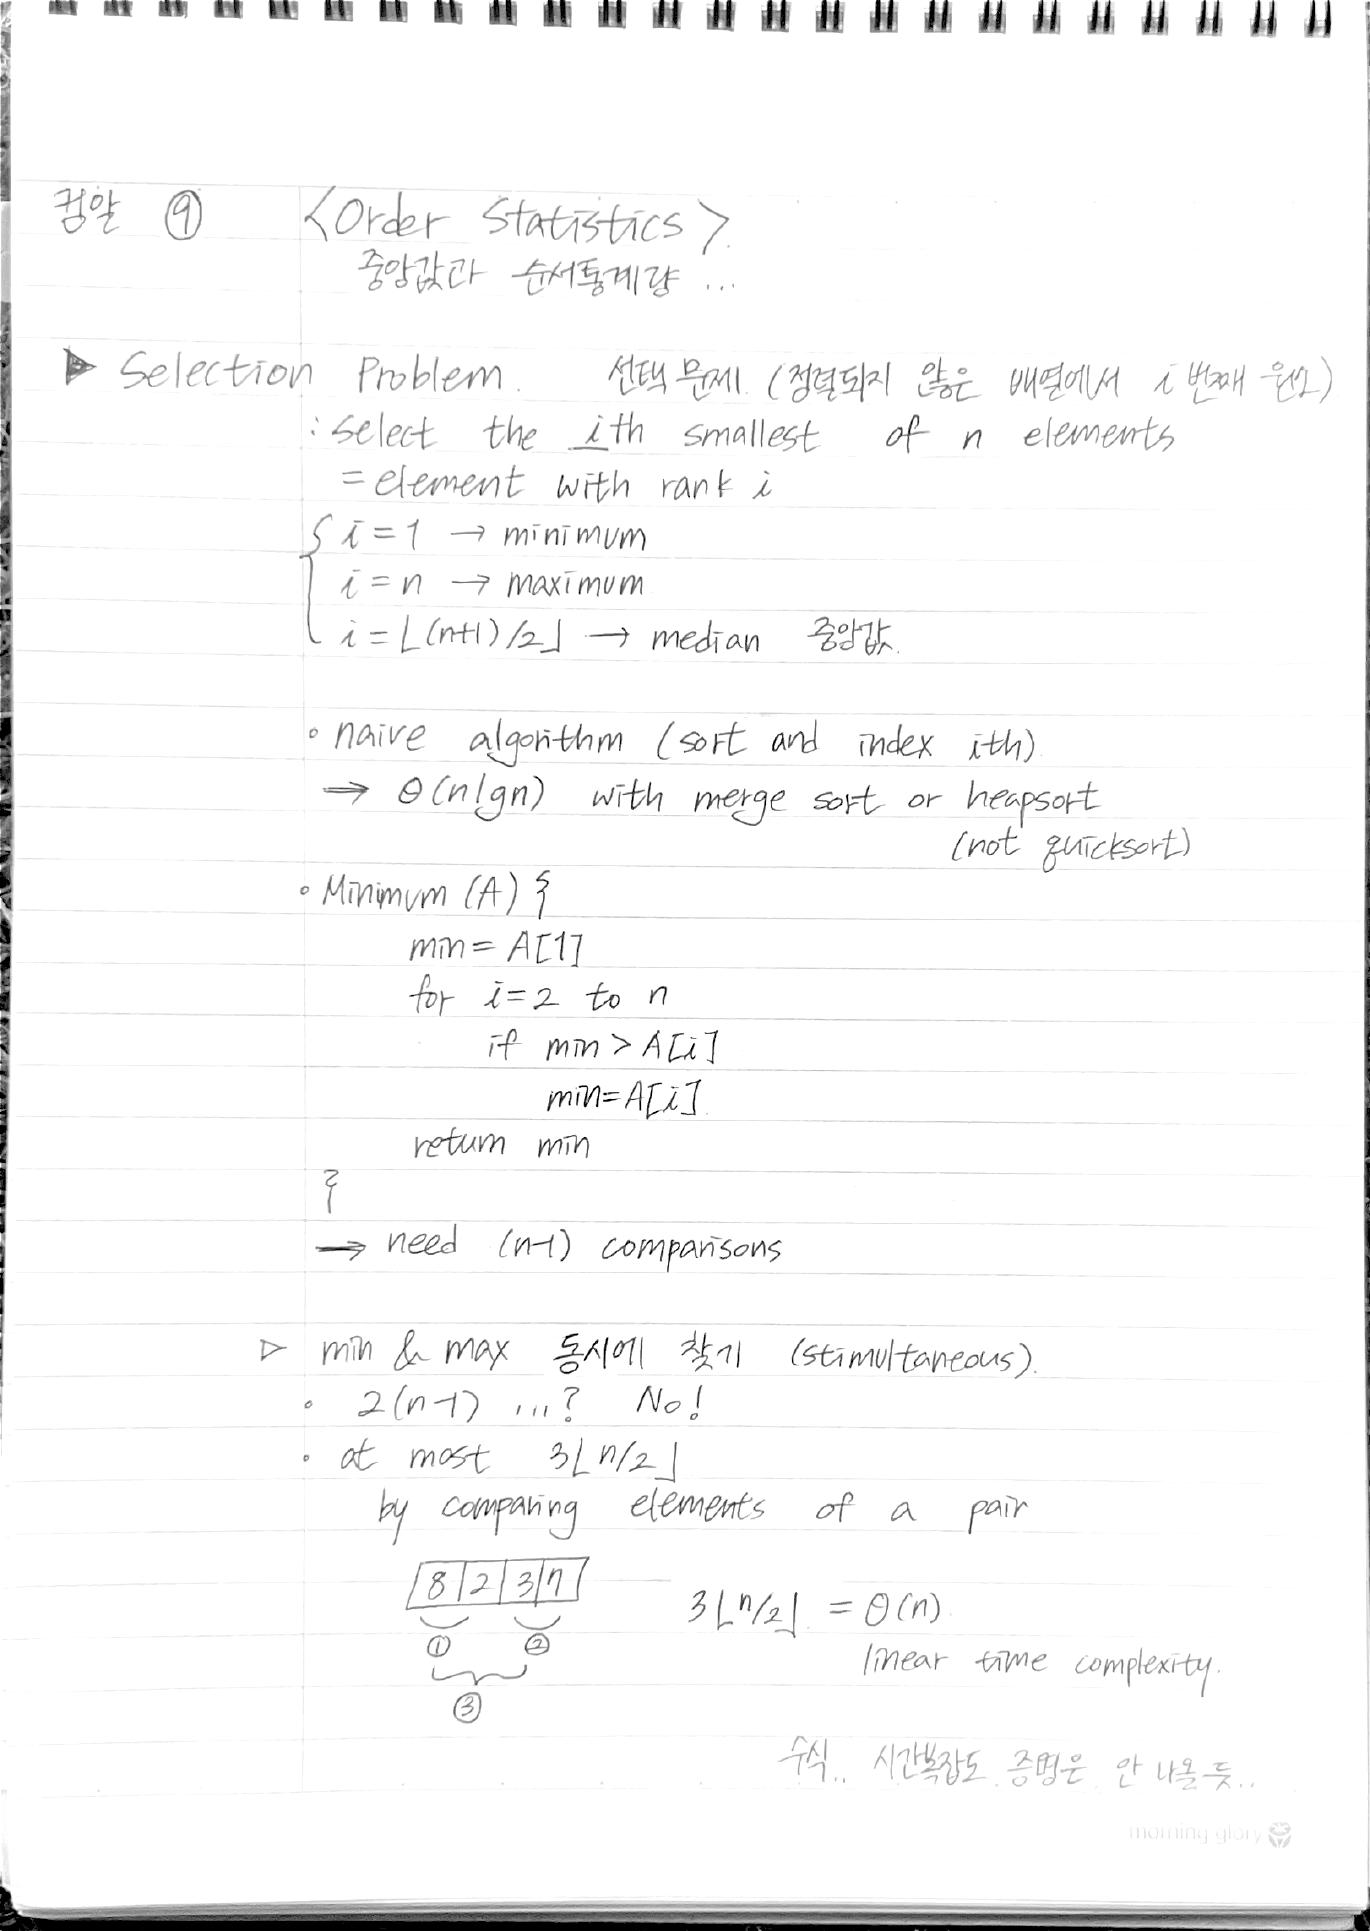 컴알 ⑨ <Order Statistics>
중앙값과 순서통계량 ...
▶ Selection Problem. 선택 문제. (정렬되지 않은 배열에서 i 번째 원소)
: select the ith smallest of n elements
= element with rank i
{ i = 1 → minimum
i = n → maximum
i = ⌊(n+1)/2⌋ → median 중앙값.
◦ naive algorithm (sort and index ith)
⇒ Θ(nlgn) with merge sort or heapsort
(not quicksort)
◦ Minimum (A) {
min = A[1]
for i=2 to n
if min > A[i]
min=A[i]
return min
}
→ need (n-1) comparisons
▷ min & max 동시에 찾기 (stimultaneous).
◦ 2(n-1) ...? No!
• at most 3⌊n/2⌋
by comparing elements of a pair
8 2 3 7
3⌊n/2⌋ = Θ(n)
① ②
linear time complexity.
③
수식.. 시간복잡도 증명은 안 나올 듯..
morning glory